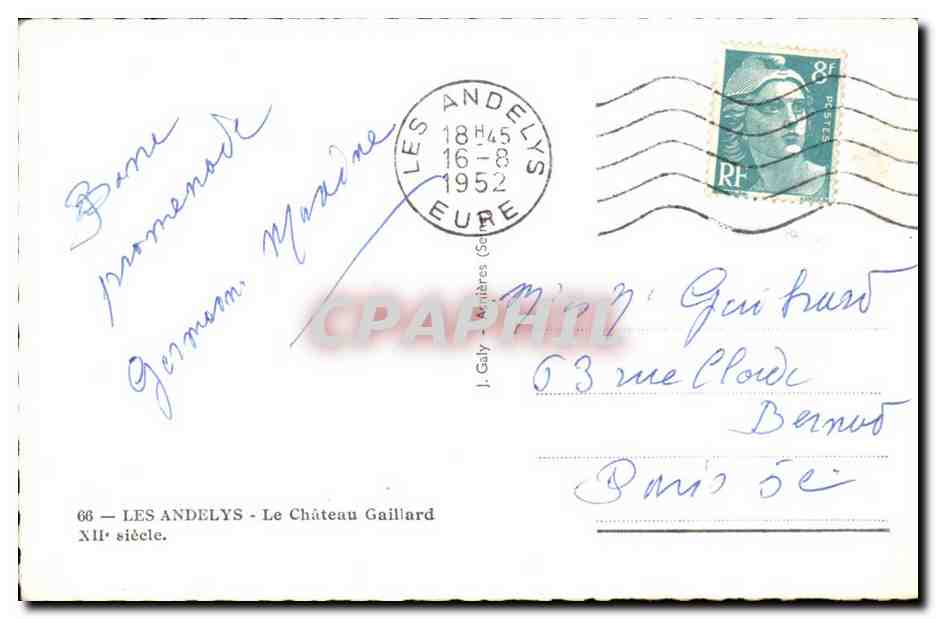 Bonne
promenade
LES ANDELYS
18H45
16-8
1952
EURE
8F
POSTES
RF
63 rue Claude
Bernard
Paris 5e
J. Galy - Asnières (Sei
CPAPHIL
66 — LES ANDELYS - Le Château Gaillard
XIIe siècle.